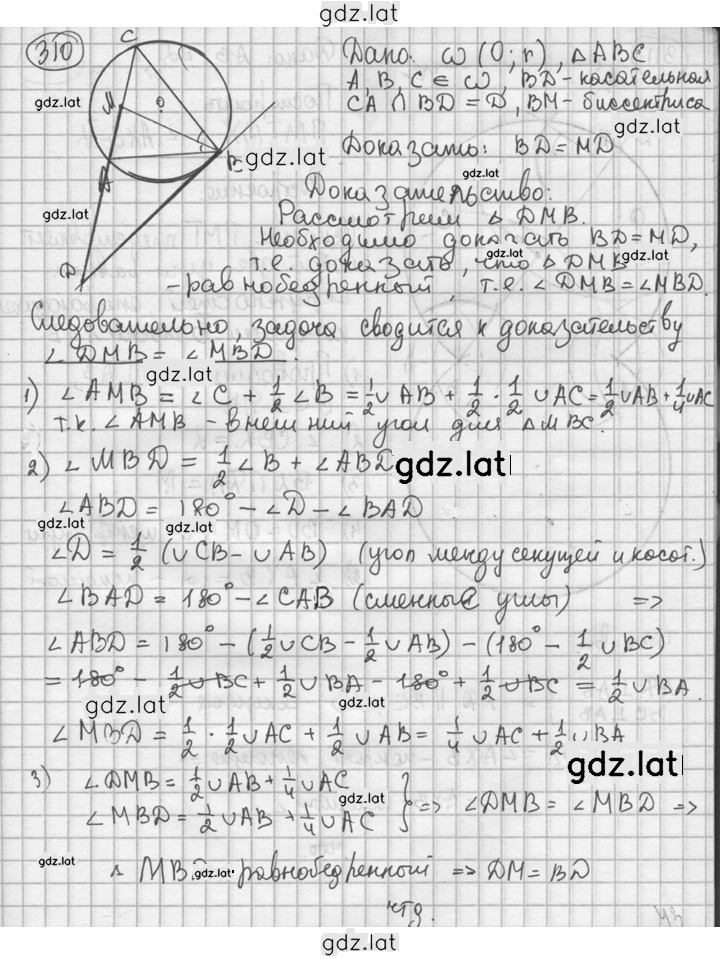 gdz.lat
310
Дано: ω (O; r), △ABC
A, B, C ∈ ω, BD - касательная
CA ∩ BD = D, BM - биссектриса
Доказать: BD = MD
Доказательство:
Рассмотрим △ DMB.
Необходимо доказать BD = MD,
т.е. доказать, что △ DMB
- равнобедренный, т.е. ∠ DMB = ∠MBD.
Следовательно, задача сводится к доказательству
∠ DMB = ∠ MBD.
1) ∠ AMB = ∠C + 1/2 ∠B = 1/2 ∪ AB + 1/2 · 1/2 ∪ AC = 1/2 ∪ AB + 1/4 ∪ AC
т.к. ∠ AMB - внешний угол для △MBC.
2) ∠ MBD = 1/2 ∠B + ∠ABD
∠ABD = 180° - ∠D - ∠BAD
∠D = 1/2 (∪ CB - ∪ AB) (угол между секущей и касат.)
∠ BAD = 180° - ∠CAB (смежные углы) =>
∠ ABD = 180° - (1/2 ∪ CB - 1/2 ∪ AB) - (180° - 1/2 ∪ BC)
= 180° - 1/2 ∪ BC + 1/2 ∪ BA - 180° + 1/2 ∪ BC = 1/2 ∪ BA.
∠ MBD = 1/2 · 1/2 ∪ AC + 1/2 ∪ AB = 1/4 ∪ AC + 1/2 ∪ BA
3) ∠DMB = 1/2 ∪ AB + 1/4 ∪ AC
∠ MBD = 1/2 ∪ AB + 1/4 ∪ AC } => ∠DMB = ∠MBD =>
△ MBD - равнобедренный => DM = BD
чтд.
gdz.lat